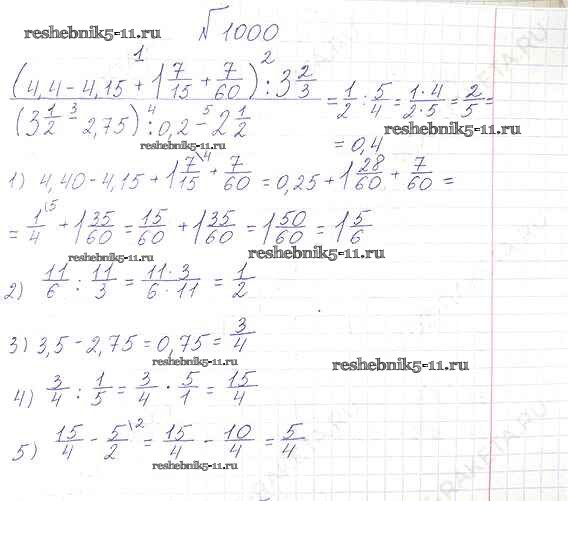 № 1000
reshebnik5-11.ru
(4,4 - 4,15 + 1 7/15 + 7/60) : 3 2/3 1 2
(3 1/2 - 2,75) : 0,2 - 2 1/2 3 4 5
= 1/2 : 5/4 = 1·4/2·5 = 2/5 =
= 0,4
reshebnik5-11.ru
reshebnik5-11.ru
1) 4,40 - 4,15 + 1 7/15 \4 + 7/60 = 0,25 + 1 28/60 + 7/60 =
= 1/4 \15 + 1 35/60 = 15/60 + 1 35/60 = 1 50/60 = 1 5/6
reshebnik5-11.ru
reshebnik5-11.ru
2) 11/6 : 11/3 = 11·3/6·11 = 1/2
3) 3,5 - 2,75 = 0,75 = 3/4
reshebnik5-11.ru
reshebnik5-11.ru
4) 3/4 : 1/5 = 3/4 · 5/1 = 15/4
5) 15/4 - 5/2 \2 = 15/4 - 10/4 = 5/4
reshebnik5-11.ru